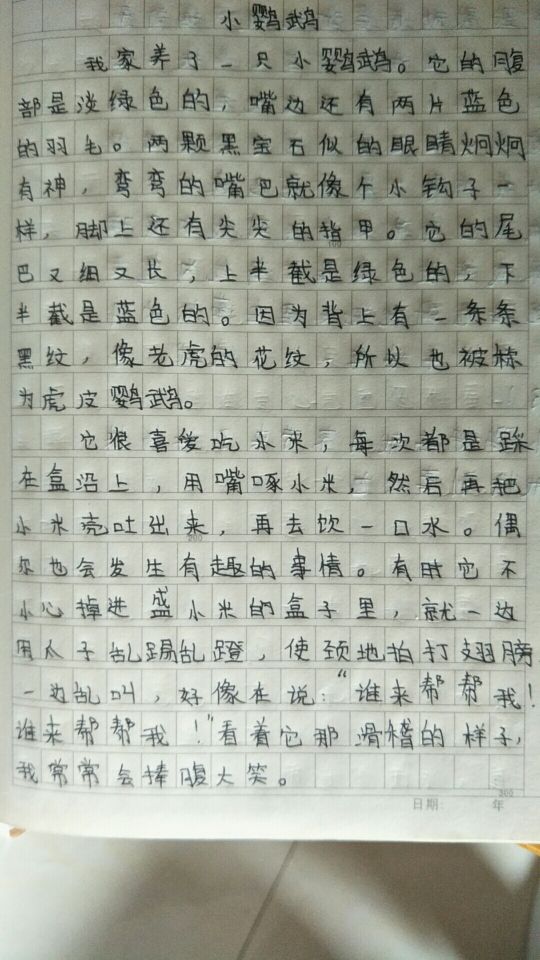 小鹦鹉
我家养了一只小鹦鹉。它的腹
部是淡绿色的，嘴边还有两片蓝色
的羽毛。两颗黑宝石似的眼睛炯炯
有神，弯弯的嘴巴就像个小钩子一
样，脚上还有尖尖的指甲。它的尾
巴又细又长，上半截是绿色的，下
半截是蓝色的。因为背上有一条条
黑纹，像老虎的花纹，所以也被称
为虎皮鹦鹉。
它很喜爱吃小米，每次都是踩
在盒沿上，用嘴啄小米，然后再把
小米壳吐出来，再去饮一口水。偶
尔也会发生有趣的事情。有时它不
小心掉进盛小米的盒子里，就一边
用爪子乱踢乱蹬，使颈地拍打翅膀
一边乱叫，好像在说：“谁来帮帮我！
谁来帮帮我！”看着它那滑稽的样子，
我常常会捧腹大笑。
200
300
日期： 年